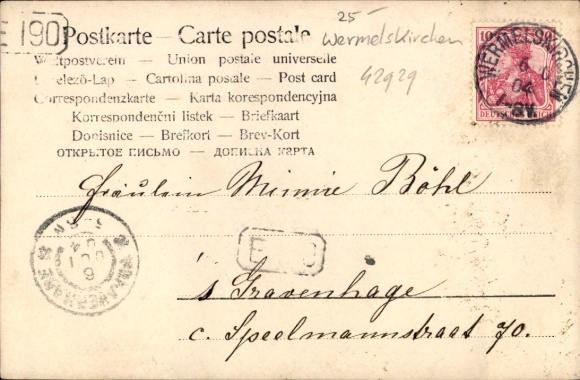 E 190
25-
Postkarte — Carte postale
Wermelskirchen
Weltpostverein — Union postale universelle
Levelező-Lap — Cartolina postale — Post card
42929
Correspondenzkarte — Karta korespondencyjna
Korrespondenční listek — Briefkaart
Dopisnice — Brefkort — Brev-Kort
ОТКРЫТОЕ ПИСЬМО — ДОПИСНАЯ КАРТА
10 10
WERMELSKIRCHEN
DEUTSCHES REICH
Fräulein Minnie Böhl
s Gravenhage
c. Speelmannstraat 70.